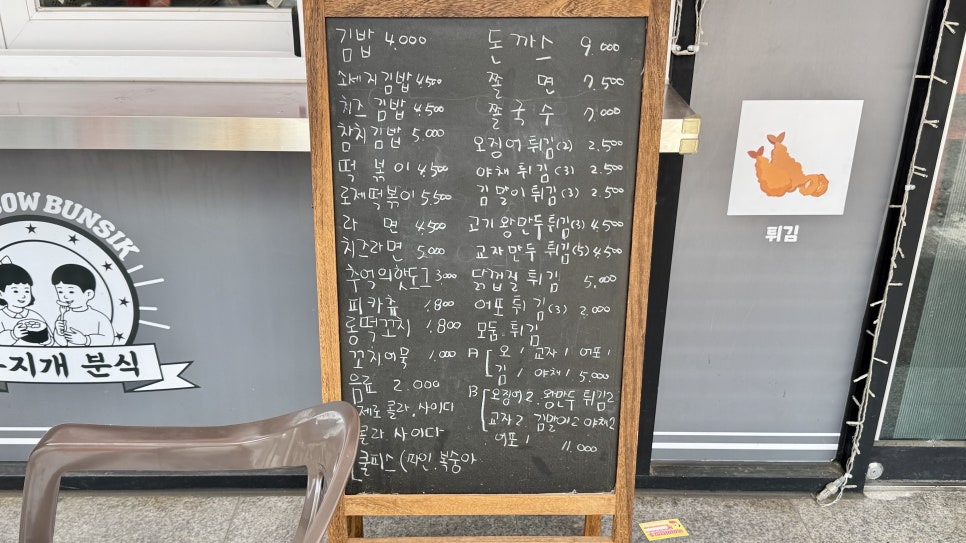 김밥 4.000
소세지김밥 4,500
치즈 김밥 4.500
참치김밥 5.000
떡 볶이 4.500
로제떡볶이 5.500
라 면 4.500
치즈라면 5.000
추억의핫도그 3.000
피카츄 1.800
롱떡꼬치 1.800
꼬치어묵 1.000
음료 2.000
제로콜라.사이다
콜라 사이다
쿨피스(파인.복숭아
돈 까 스 9.000
쫄 면 7.500
쫄 국 수 7.000
오징어 튀김(2) 2.500
야채 튀김(3) 2.500
김말이 튀김(3) 2.500
고기 왕만두튀김(3) 4.500
교자만두 튀김(5) 4.500
닭껍질 튀김 5.000
어포튀김(3) 2.000
모듬.튀김
A [ 오 1 교자 1 어포 1
김 1 야채 1 5.000
B [ 오징어2. 왕만두 튀김2
교자2 김말이2 야채2
어포 1 11.000
BOW BUNSIK
지개 분식
튀김